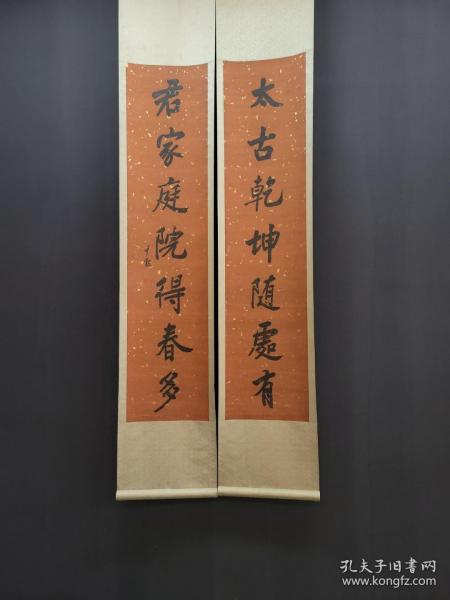 太古乾坤随處有
君家庭院得春多
孔夫子旧书网
www.kongfz.com